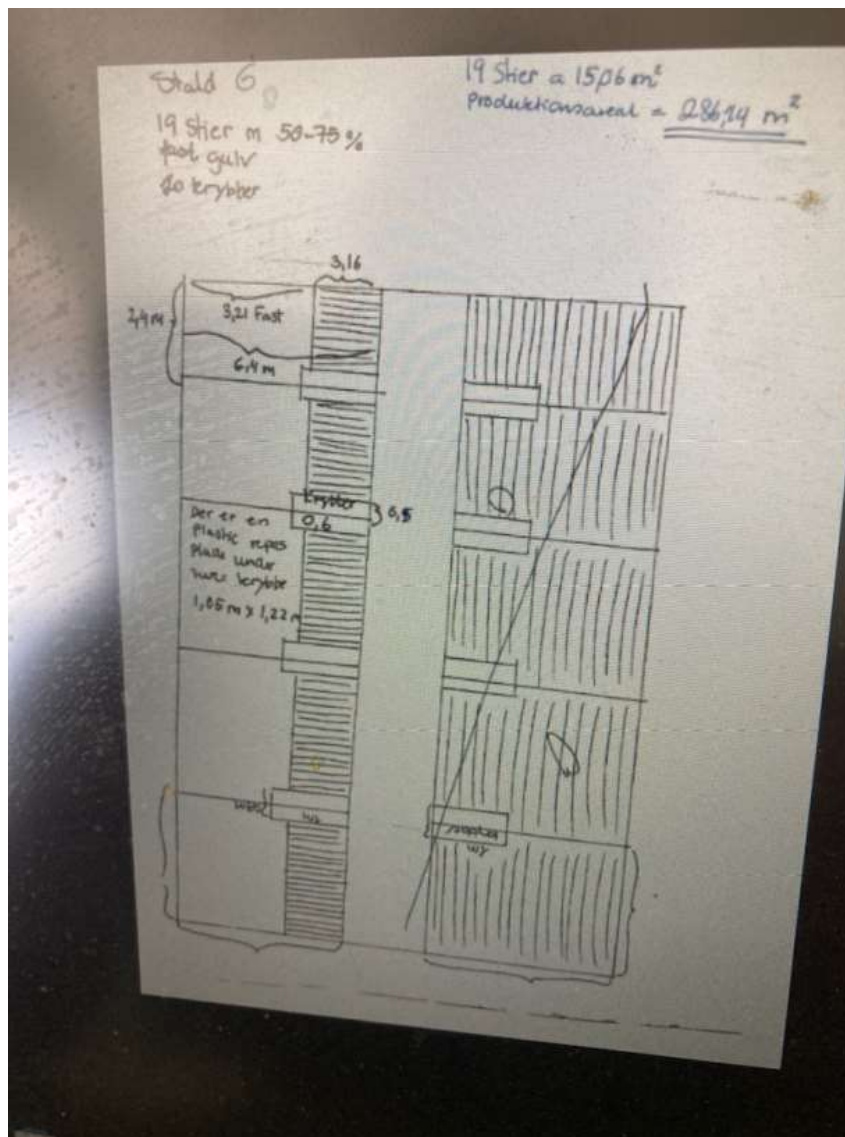 Stald 6
19 Stier m 50-75%
fast gulv
20 krybber
19 Stier a 15,06 m²
Produktionsareal = 286,14 m²
3,16
2,4 m
3,21 Fast
6,4 m
Krybber
0,6
0,5
Der er en
Plastic repos
Plade under
hver krybbe
1,05 m x 1,22 m